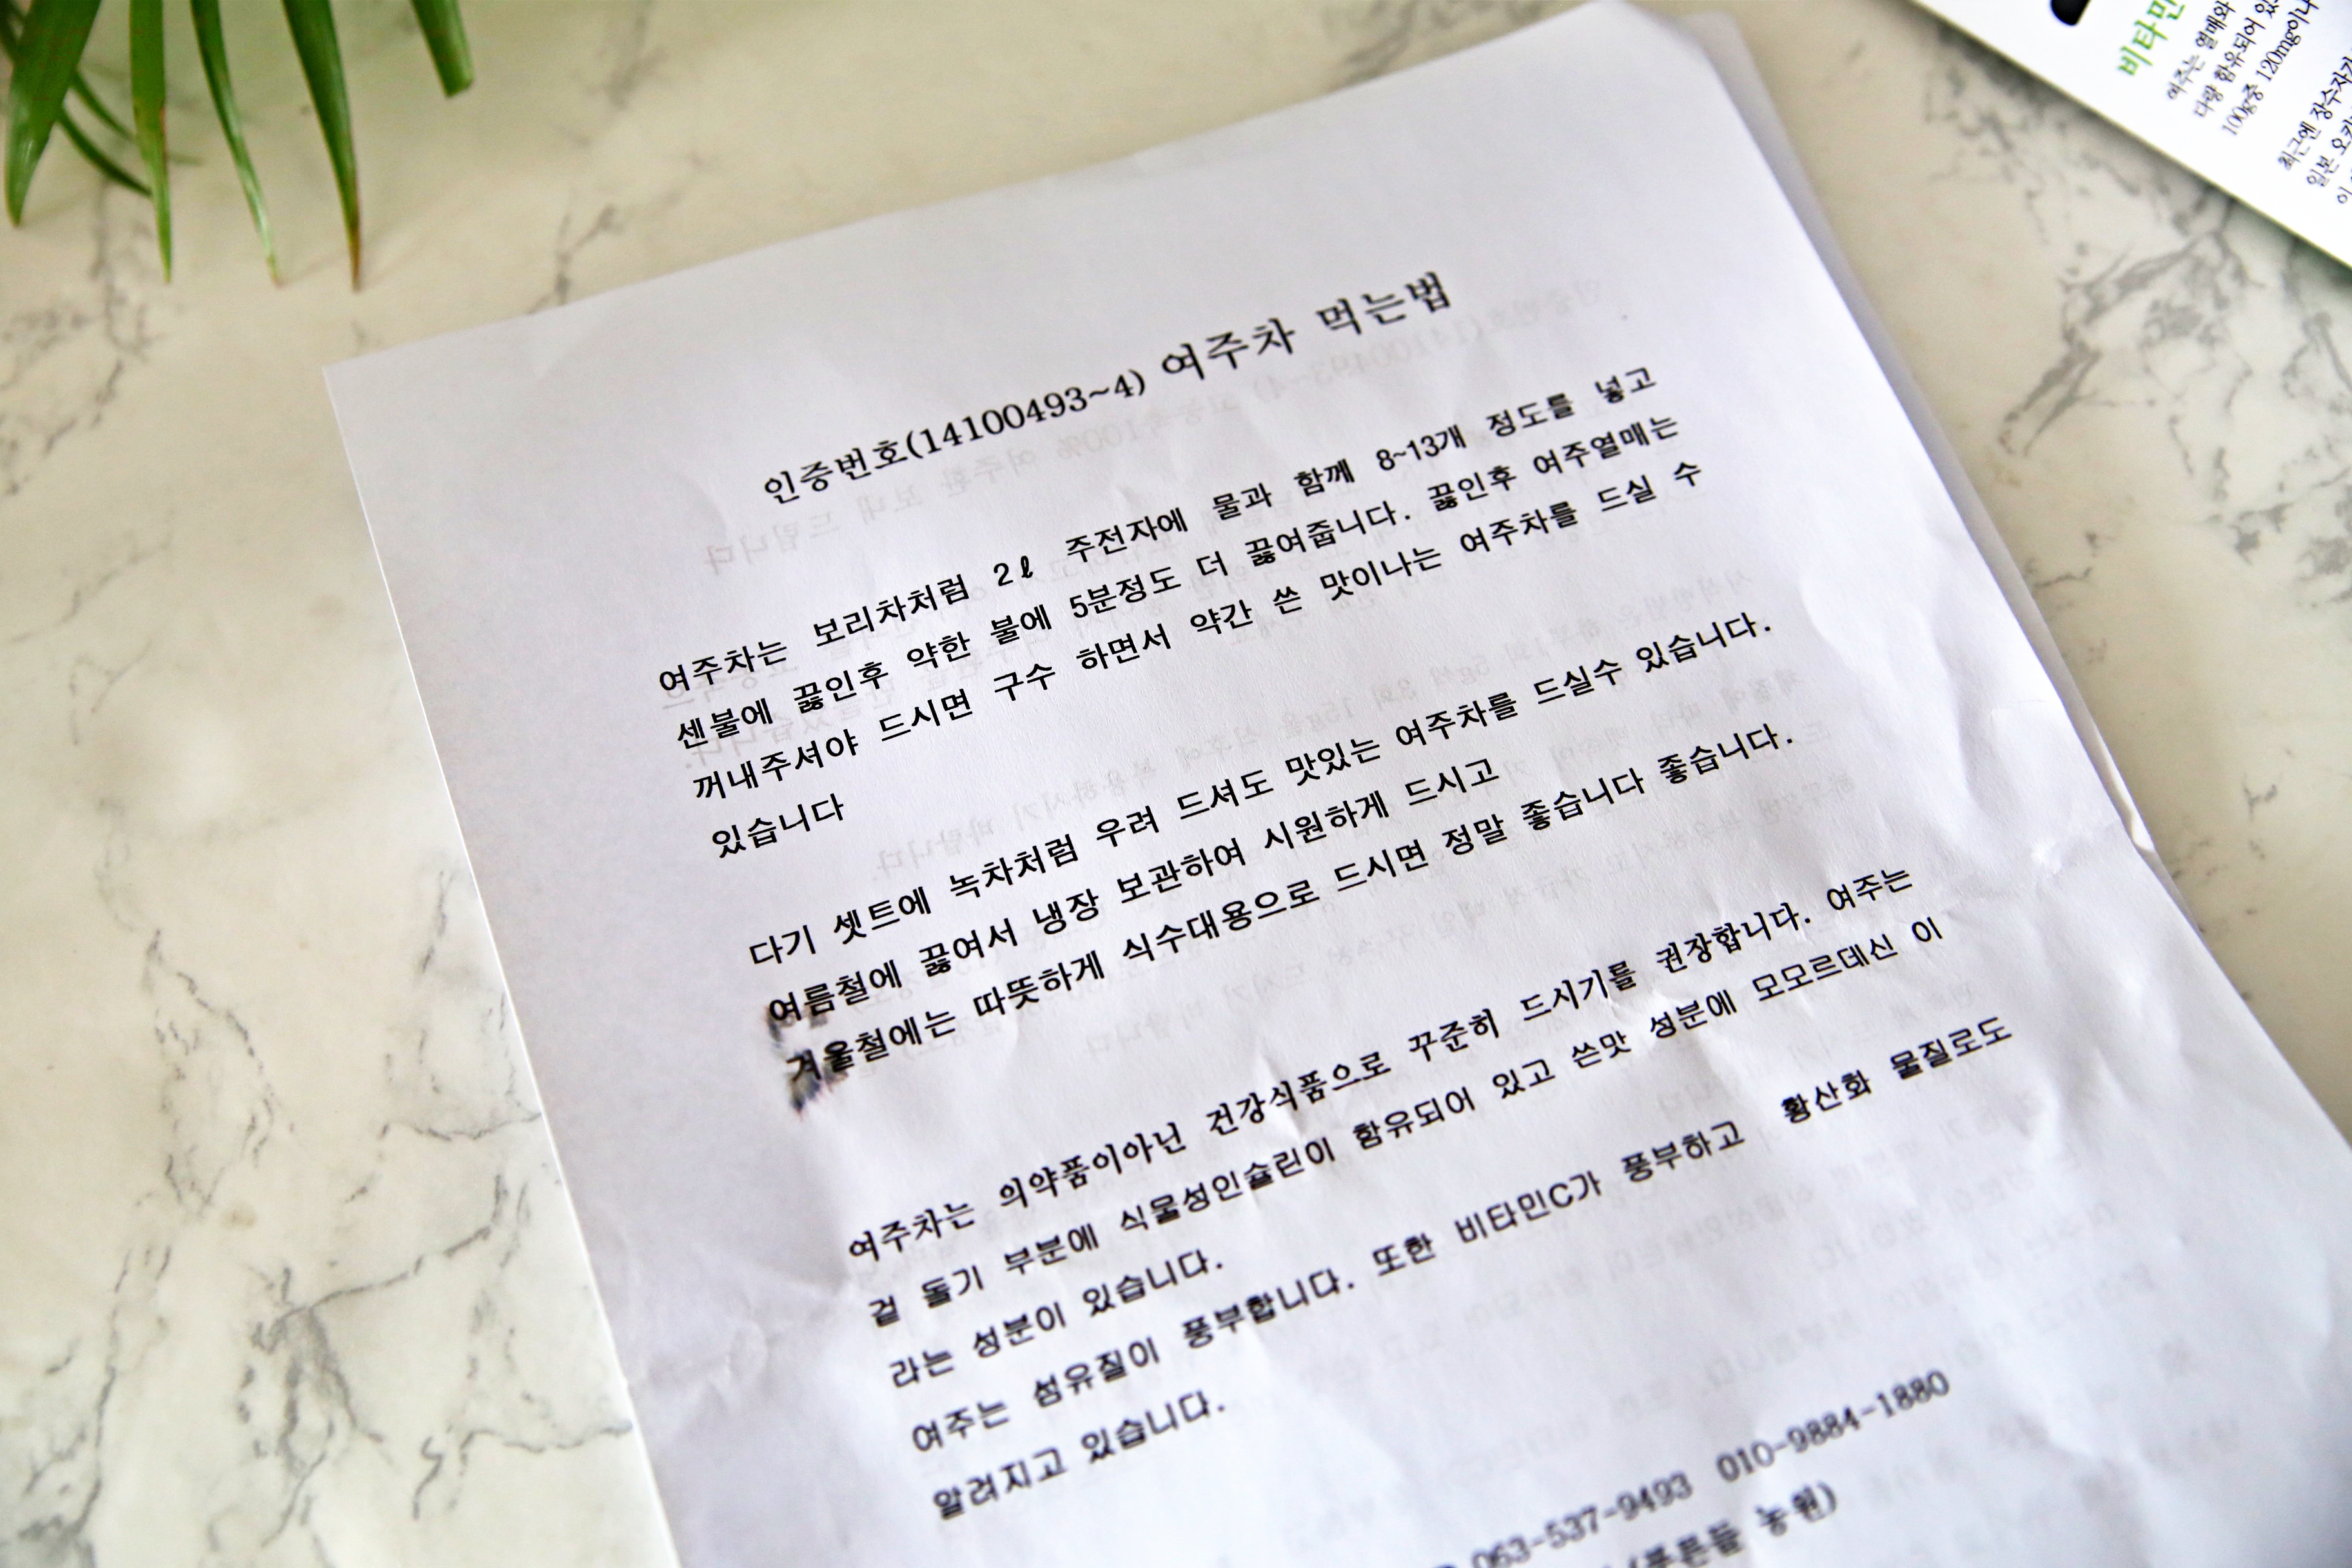 인증번호(14100493~4) 여주차 먹는법
여주차는 보리차처럼 2ℓ 주전자에 물과 함께 8~13개 정도를 넣고
센불에 끓인후 약한 불에 5분정도 더 끓여줍니다. 끓인후 여주열매는
꺼내주셔야 드시면 구수 하면서 약간 쓴 맛이나는 여주차를 드실 수
있습니다
다기 셋트에 녹차처럼 우려 드셔도 맛있는 여주차를 드실수 있습니다.
여름철에 끓여서 냉장 보관하여 시원하게 드시고
겨울철에는 따뜻하게 식수대용으로 드시면 정말 좋습니다 좋습니다.
여주차는 의약품이아닌 건강식품으로 꾸준히 드시기를 권장합니다. 여주는
겉 돌기 부분에 식물성인슐린이 함유되어 있고 쓴맛 성분에 모모르데신 이
라는 성분이 있습니다.
여주는 섬유질이 풍부합니다. 또한 비타민C가 풍부하고 황산화 물질로도
알려지고 있습니다.
063-537-9493 010-9884-1880
(푸른들 농원)
비타민
여주는 열매와
다량 함유되어 있
100g중 120mg이나
최근엔 장수자가
일본 오키